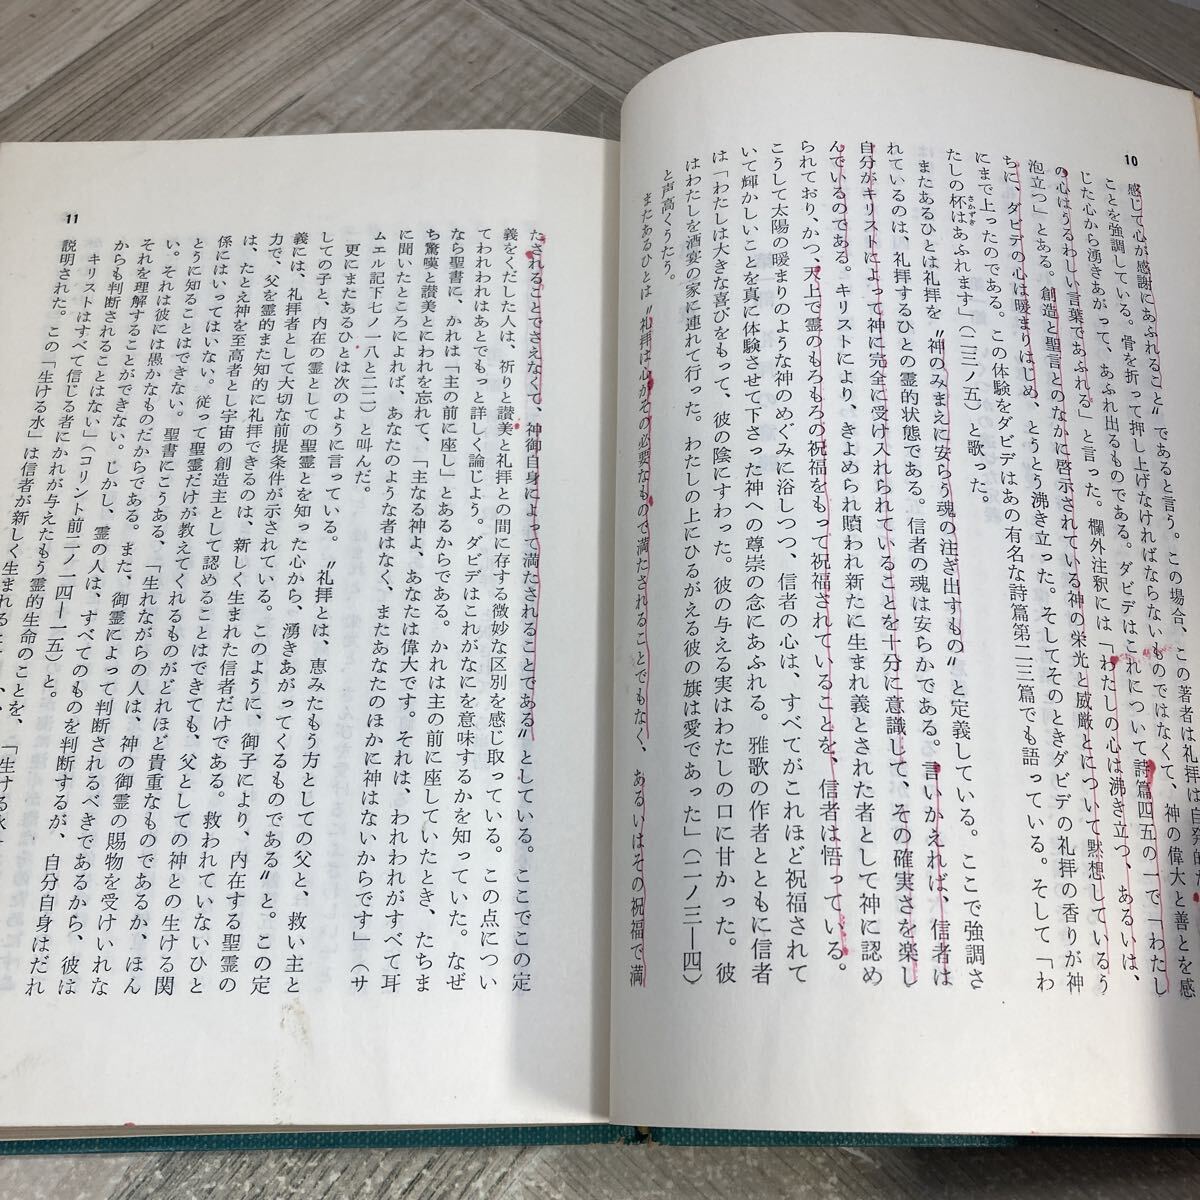 10
感じて心が感謝にあふれること〟であると言う。この場合、この著者は礼拝は自発的な
ことを強調している。骨を折って押し上げなければならないものではなくて、神の偉大と善とを感
じた心から湧きあがって、あふれ出るものである。ダビデはこれについて詩篇四五の一で「わたし
の心はうるわしい言葉であふれる」と言った。欄外注釈には「わたしの心は沸き立つ、あるいは、
泡立つ」とある。創造と聖言とのなかに啓示されている神の栄光と威厳とについて黙想しているう
ちに、ダビデの心は暖まりはじめ、とうとう沸き立った。そしてそのときダビデの礼拝の香りが神
にまで上ったのである。この体験をダビデはあの有名な詩篇第二三篇でも語っている。そして「わ
たしの杯はあふれます」(二三ノ五)と歌った。
さかずき
またあるひとは礼拝を〝神のみまえに安らう魂の注ぎ出すもの〟と定義している。ここで強調さ
れているのは、礼拝するひとの霊的状態である。信者の魂は安らかである。言いかえれば、信者は
自分がキリストによって神に完全に受け入れられていることを十分に意識して、その確実さを楽し
んでいるのである。キリストにより、きよめられ贖われ新たに生まれ義とされた者として神に認め
られており、かつ、天上で霊のもろもろの祝福をもって祝福されていることを、信者は悟っている。
こうして太陽の暖まりのような神のめぐみに浴しつつ、信者の心は、すべてがこれほど祝福されて
いて輝かしいことを真に体験させて下さった神への尊崇の念にあふれる。雅歌の作者とともに信者
は「わたしは大きな喜びをもって、彼の陰にすわった。彼の与える実はわたしの口に甘かった。彼
はわたしを酒宴の家に連れて行った。わたしの上にひるがえる彼の旗は愛であった」(二ノ三—四)
と声高くうたう。
またあるひとは〝礼拝は心がその必要なもので満たされることでもなく、あるいはその祝福で満
11
たされることでさえなくて、神御自身によって満たされることである〟としている。ここでこの定
義をくだした人は、祈りと讃美と礼拝との間に存する微妙な区別を感じ取っている。この点につい
てわれわれはあとでもっと詳しく論じよう。ダビデはこれがなにを意味するかを知っていた。なぜ
なら聖書に、かれは「主の前に座し」とあるからである。かれは主の前に座していたとき、たちま
ち驚嘆と讃美とにわれを忘れて、「主なる神よ、あなたは偉大です。それは、われわれがすべて耳
に聞いたところによれば、あなたのような者はなく、またあなたのほかに神はないからです」(サ
ムエル記下七ノ一八と二二)と叫んだ。
更にまたあるひとは次のように言っている。〝礼拝とは、恵みたもう方としての父と、救い主と
しての子と、内在の霊としての聖霊とを知った心から、湧きあがってくるものである〟と。この定
義には、礼拝者として大切な前提条件が示されている。このように、御子により、内在する聖霊の
力で、父を霊的また知的に礼拝できるのは、新しく生まれた信者だけである。救われていないひと
は、たとえ神を至高者とし宇宙の創造主として認めることはできても、父としての神との生ける関
係にはいってはいない。従って聖霊だけが教えてくれるものがどれほど貴重なものであるか、ほん
とうに知ることはできない。聖書にこうある、「生れながらの人は、神の御霊の賜物を受けいれな
い。それは彼には愚かなものだからである。また、御霊によって判断されるべきであるから、彼は
それを理解することができない。しかし、霊の人は、すべてのものを判断するが、自分自身はだれ
からも判断されることはない」(コリント前二ノ一四—一五)と。
キリストはすべて信じる者にかれが与えたもう霊的生命のことを、「生ける水」
説明された。この「生ける水」は信者が新しく生まれる